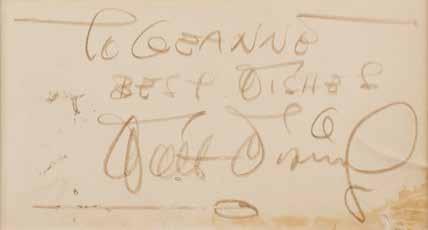 To GEANNE
BEST WISHES
Walt Disney